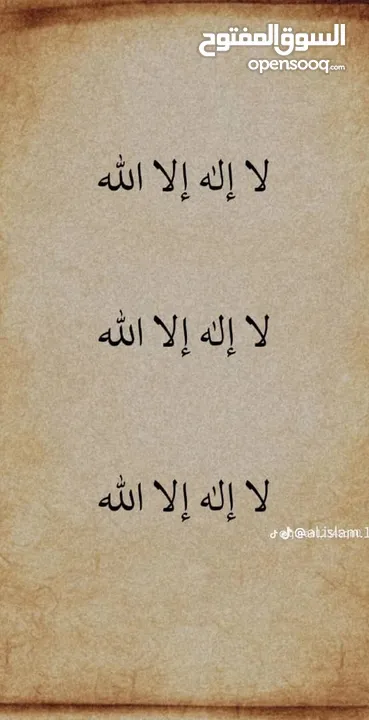 السوق المفتوح
opensooq.com
لا إله إلا الله
لا إله إلا الله
لا إله إلا الله